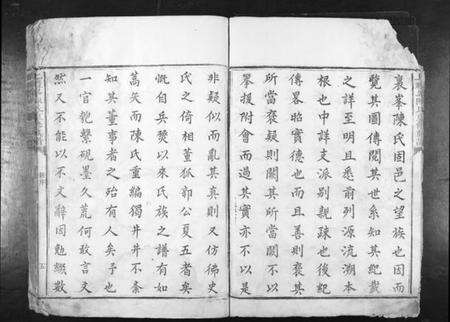 襄峯陳氏固邑之望族也因而
覽其圖傳閱其世系知其紀載
之詳至明且悉前列源流溯本
根也中詳支派別親疎也後紀
傳畧昭實德也而且善則褒其
所當褒疑則闕其所當闕不以
攀援附會而過其實亦不以是
非疑似而亂其真則又仿彿史
氏之倚相董狐郭公夏五者矣
慨自兵燹以來氏族之譜有如
蒿矣而陳氏重編獨井井不紊
知其董事者之殆有人矣予也
一官匏繫硯墨久荒何敢言文
然又不能以不文辭因勉綴數